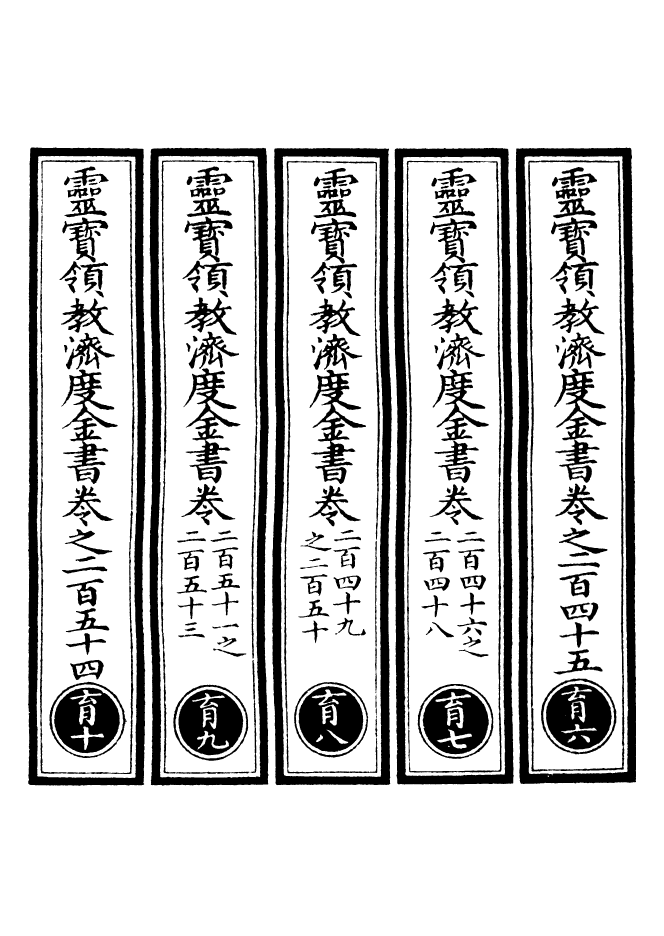 靈寶領教濟度金書卷之二百四十五
育六
靈寶領教濟度金書卷
二百四十六之
二百四十八
育七
靈寶領教濟度金書卷
二百四十九
之二百五十
育八
靈寶領教濟度金書卷
二百五十一之
二百五十三
育九
靈寶領教濟度金書卷之二百五十四
育十